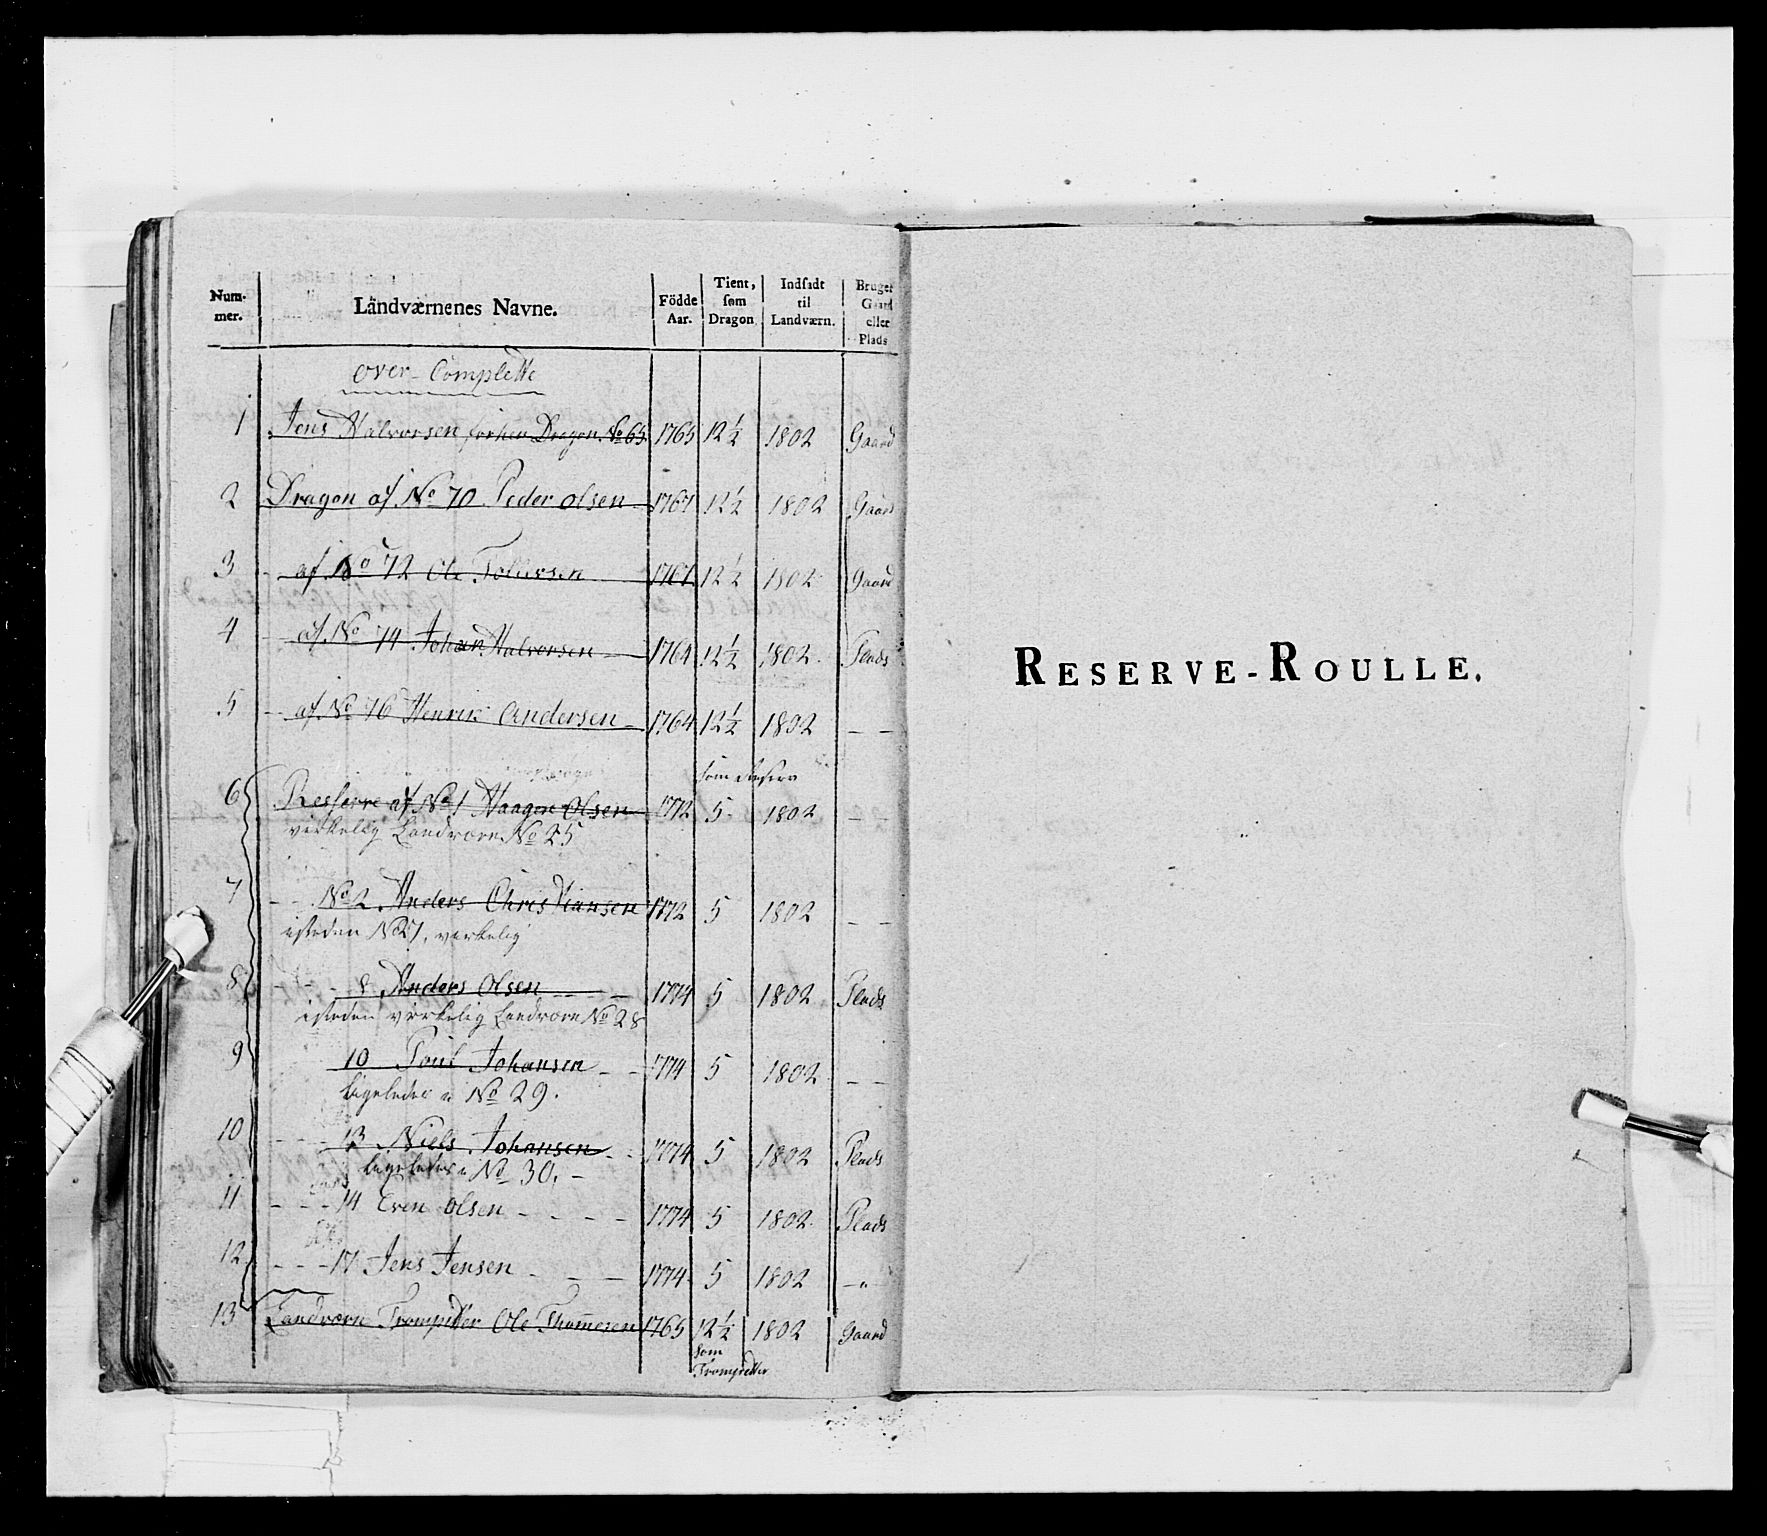 Num-
mer.
Landværnenes Navne.
Födde
Aar.
Tient,
som
Dragon
Indsadt
til
Landværn.
Bruger
Gaard
eller
Plads
over-Complette
1 Jens Halvorsen forhen Dragon No 65 1765 12 1/2 1802 Gaard
2 Dragon af No 70 Peder Olsen 1767 12 1/2 1802 Gaard
3 - af No 72 Ole Tollersen 1767 12 1/2 1802 Gaard
4 - af No 74 Johan Halvorsen 1764 12 1/2 1802. Plads
5 - - af No 76 Henrik Andersen - 1764 12 1/2 1802 - -
som Reserv
6 Resserve af No 1 Haagen Olsen 1772 5. 1802 - -
virkelig Landværn No 25
7 - - No 2 Anders Christiansen 1772 5 1802 - -
isteden No 27, virkelig
8 - - - 8 Anders Olsen - - - 1774 5 1802 Plads
isteden virkelig Landværn No 28
9 10 Poul Johansen - - 1774 5 1802 - -
ligeledes i No 29.
10 - - - 13 Niels Johansen - - 1774 5 1802 Plads
ligeledes i No 30. -
11 - - - 14 Even Olsen - - - - 1774 5 1802. Plads
12 - - - 17 Jens Jensen - - - 1774 5 1802 - "
13 Landværn Trompetter Ole Thommesen 1765 12 1/2 1802 Gaard
som
Trompetter
RESERVE-ROULLE.